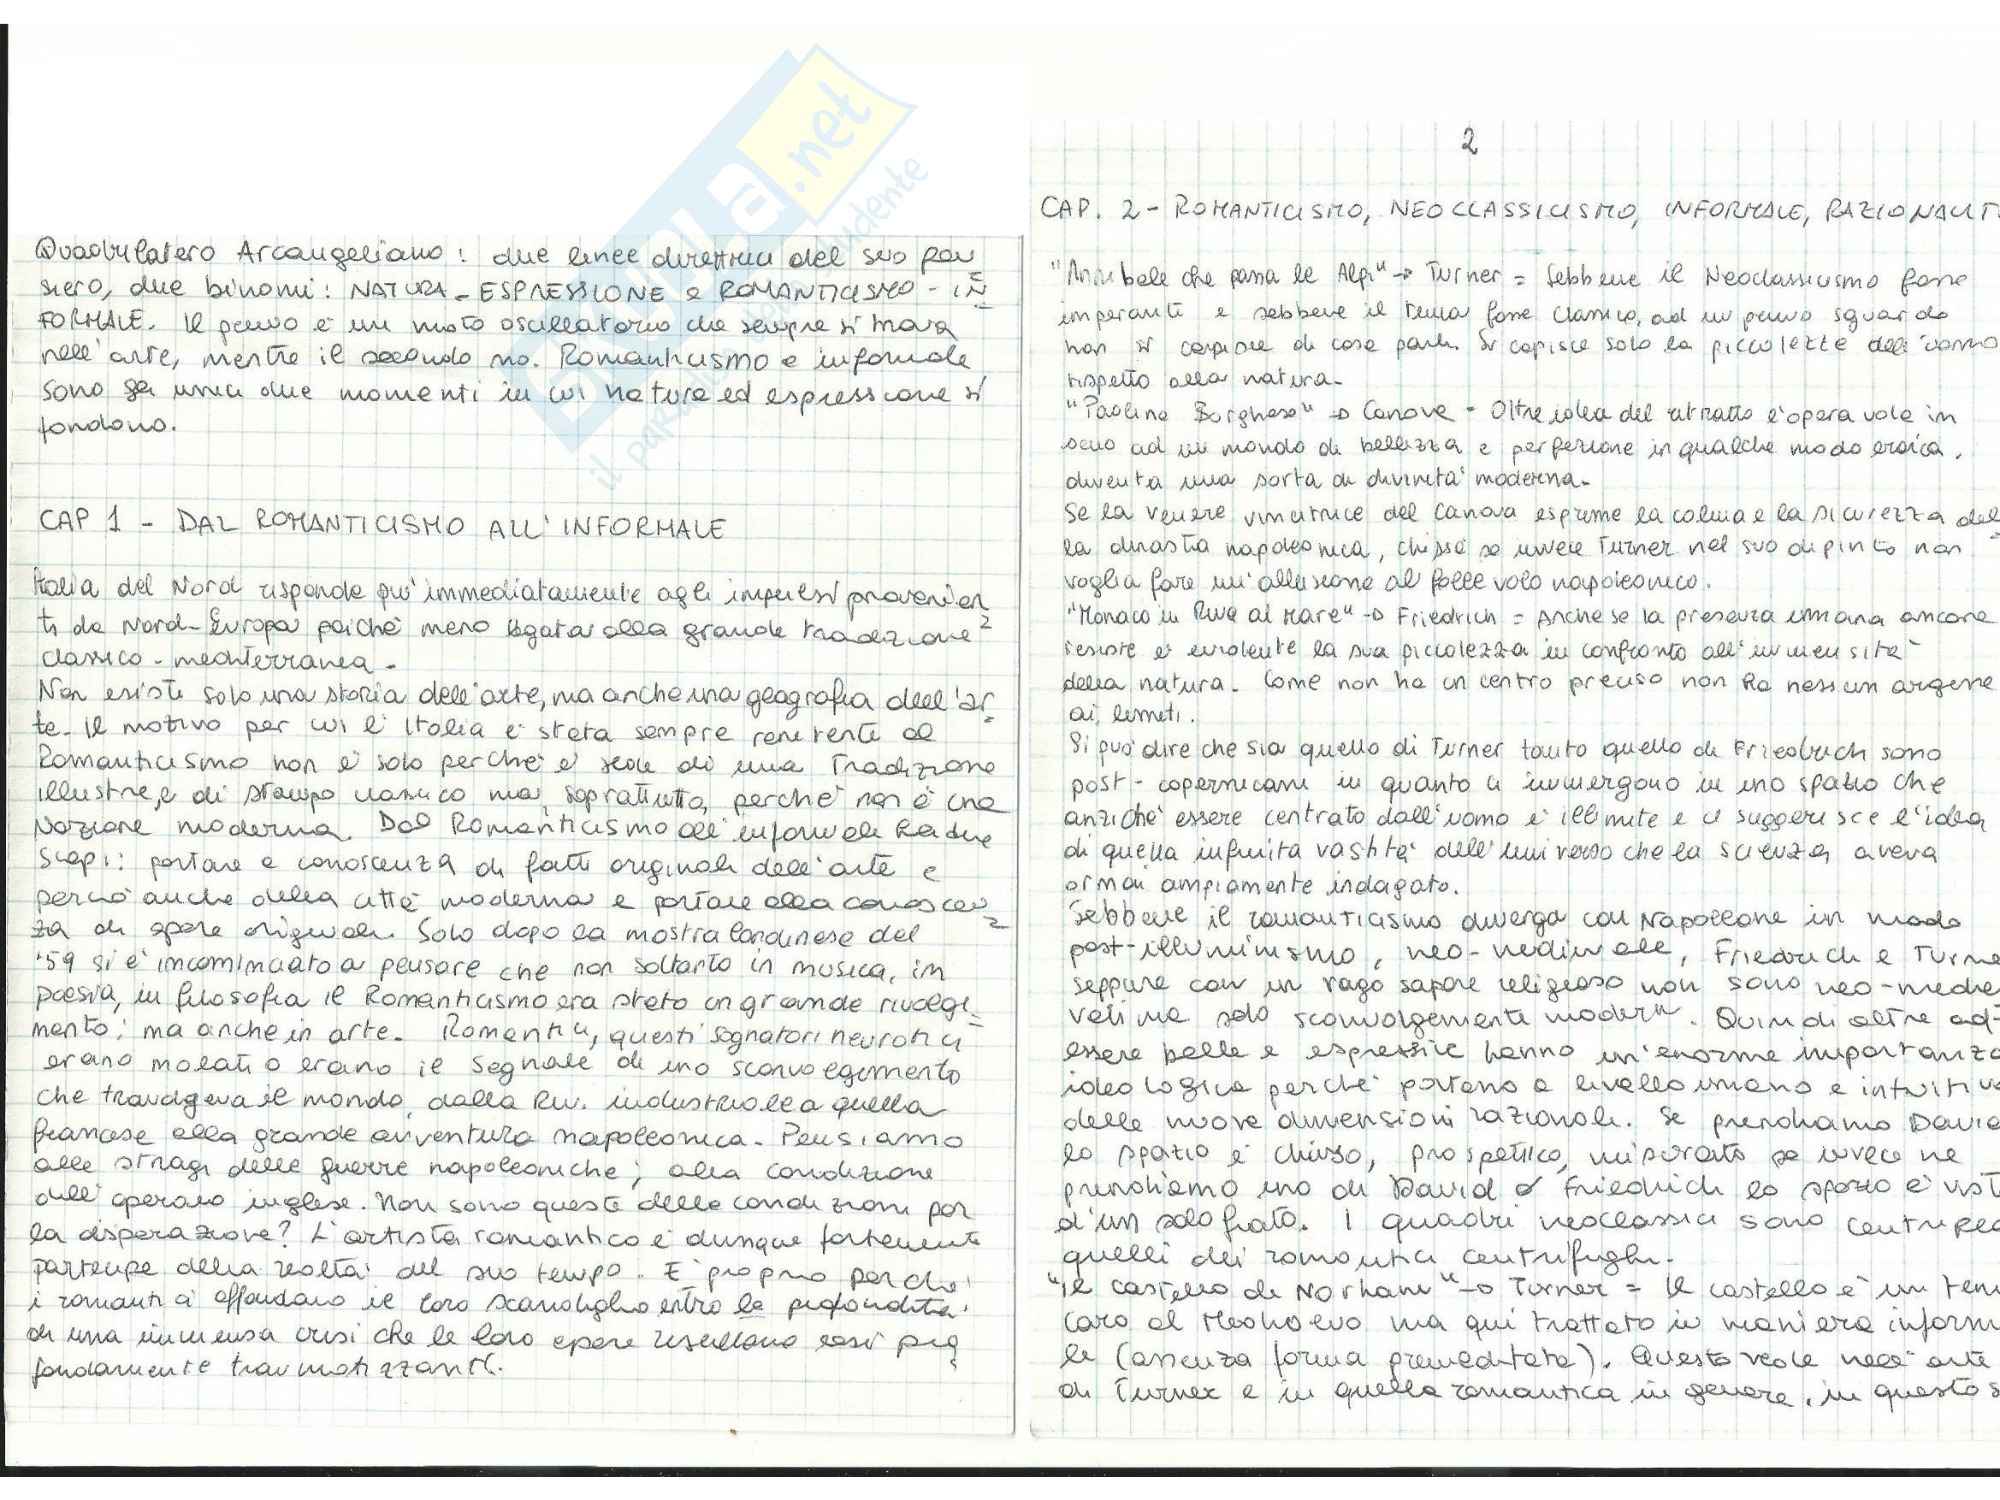 Quadrilatero Arcangeliano: due linee direttrici del suo pen
siero, due binomi: NATURA - ESPRESSIONE e ROMANTICISMO - IN
FORMALE. Il primo è un moto oscillatorio che sempre si trova
nell'arte, mentre il secondo no. Romanticismo e informale
sono gli unici due momenti in cui natura ed espressione si
fondono.
CAP 1 - DAL ROMANTICISMO ALL'INFORMALE
Italia del Nord risponde più immediatamente agli impulsi provenien
ti da Nord-Europa poichè meno legata alla grande tradizione
classico-mediterranea.
Non esiste solo una storia dell'arte, ma anche una geografia dell'ar-
te. Il motivo per cui l'Italia è stata sempre renitente al
Romanticismo non è solo perchè è sede di una tradizione
illustre, e di stampo classico ma, soprattutto, perchè non è una
Nazione moderna. Dal Romanticismo all'informale ha due
scopi: portare a conoscenza di fatti originali dell'arte e
perciò anche della città moderna e portare alla conoscen
za di opere originali. Solo dopo la mostra londinese del
'59 si è incominciato a pensare che non soltanto in musica, in
poesia, in filosofia il Romanticismo era stato un grande rivolgi=
mento; ma anche in arte. Romantici, questi sognatori neurotici
erano malati o erano il segnale di uno sconvolgimento
che travolgeva il mondo, dalla Riv. industriale a quella
francese alla grande avventura napoleonica. Pensiamo
alle stragi delle guerre napoleoniche; alla condizione
dell'operaio inglese. Non sono queste delle condizioni per
la disperazione? L'artista romantico è dunque fortemente
partecipe della realtà del suo tempo. E' proprio perchè
i romantici affondano il loro scandiglio entro le profondità
di una immensa crisi che le loro opere risultano così pro
fondamente traumatizzanti.
2
CAP. 2 - ROMANTICISMO, NEOCLASSICISMO, INFORMALE, RAZIONALIT
"Annibale che passa le Alpi" -> Turner = Sebbene il Neoclassicismo fosse
imperante e sebbene il tema fosse classico, ad un primo sguardo
non si capisce di cosa parli. Si capisce solo la piccolezza dell'uomo
rispetto alla natura.
"Paolina Borghese" -> Canova = Oltre idea del ritratto l'opera vale in
seno ad un mondo di bellezza e perfezione in qualche modo eroica,
diventa una sorta di divinità moderna.
Se la venere vincitrice del Canova esprime la calma e la sicurezza del
la dinastia napoleonica, chissà se invece Turner nel suo dipinto non
voglia fare un'allusione al folle volo napoleonico.
"Monaco in Riva al Mare" -> Friedrich = Anche se la presenza umana ancora
resiste è evidente la sua piccolezza in confronto all'immensità
della natura. Come non ha un centro preciso non ha nessun argine
ai limiti.
Si può dire che sia quello di Turner tanto quello di Friedrich sono
post-copernicani in quanto ci immergono in uno spazio che
anzichè essere centrato dall'uomo è illimite e ci suggerisce l'idea
di quella infinita vastità dell'universo che la scienza aveva
ormai ampiamente indagato.
Sebbene il romanticismo diverga con Napoleone in modo
post-illuminismo, neo-medievale, Friedrich e Turne
seppure con un vago sapore religioso non sono neo-medie
vali ma solo sconvolgemente moderni. Quindi oltre ad
essere belle e espressive hanno un'enorme importanza
ideologica perchè portano a livello umano e intuitivo
delle nuove dimensioni razionali. Se prendiamo David
lo spazio è chiuso, prospettico, misurato se invece ne
prendiamo uno di David Friedrich lo spazio è vist
d'un solo fiato. I quadri neoclassici sono centripe
quelli dei romantici centrifughi.
"Il castello di Norham" -> Turner = Il castello è un tem
caro al Medioevo ma qui trattato in maniera informa
le (assenza forma premeditata). Questo vale nell'arte
di Turner e in quella romantica in genere, in questo s
il
dente
.net